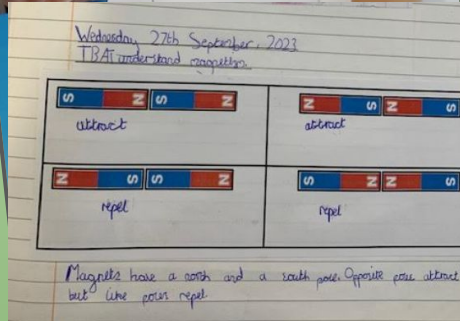 Wednesday 27th September, 2023
TBAT understand magnetism
S N S N
N S N S
attract
attract
N S S N
S N N S
repel
repel
Magnets have a north and a south pole. Opposite poles attract
but like poles repel